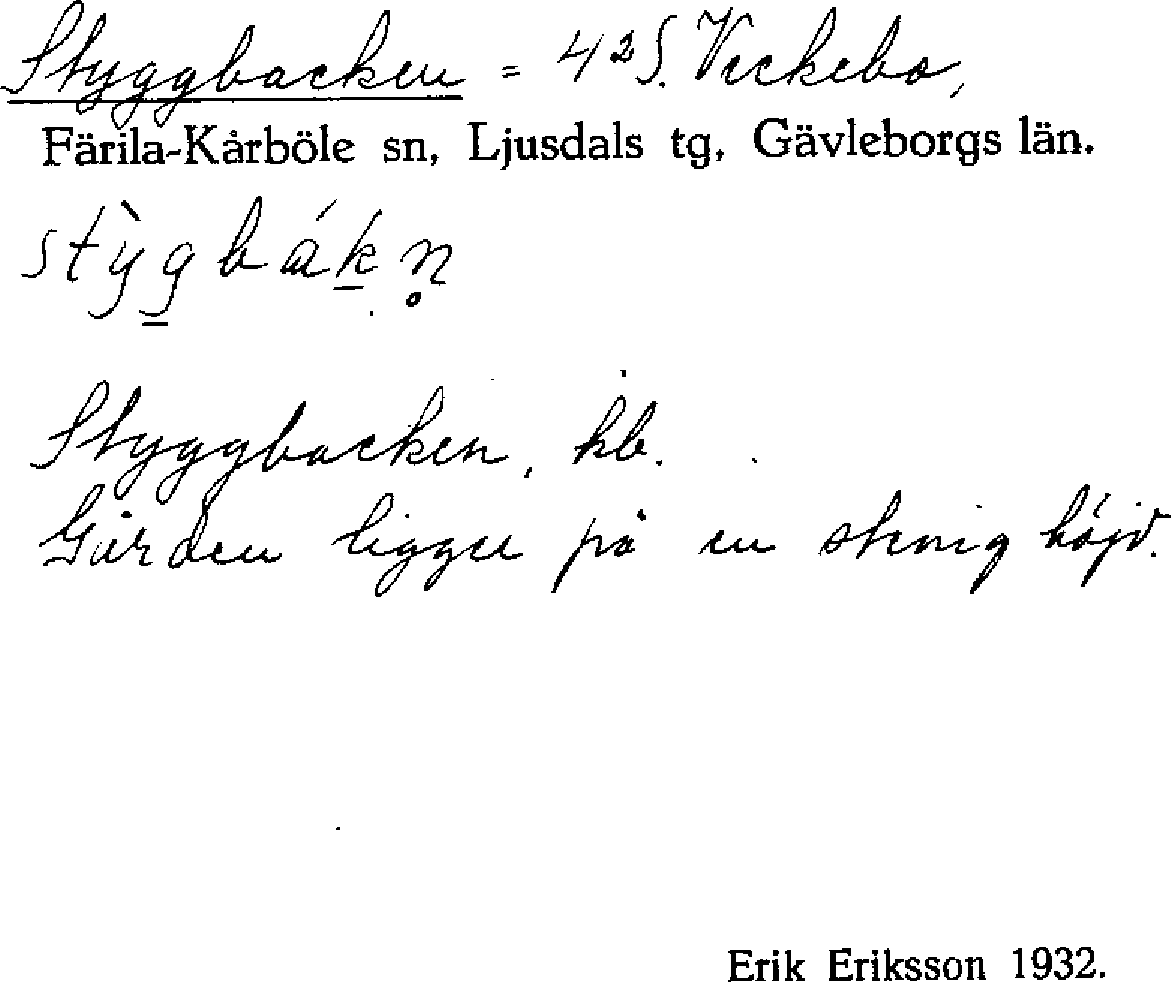 Styggbacken = 4² S. Veckebo,
Färila-Kårböle sn, Ljusdals tg, Gävleborgs län.
stỳg̲bák̲n̥
Styggbacken, kb.
Gården ligger på en stenig höjd.
Erik Eriksson 1932.